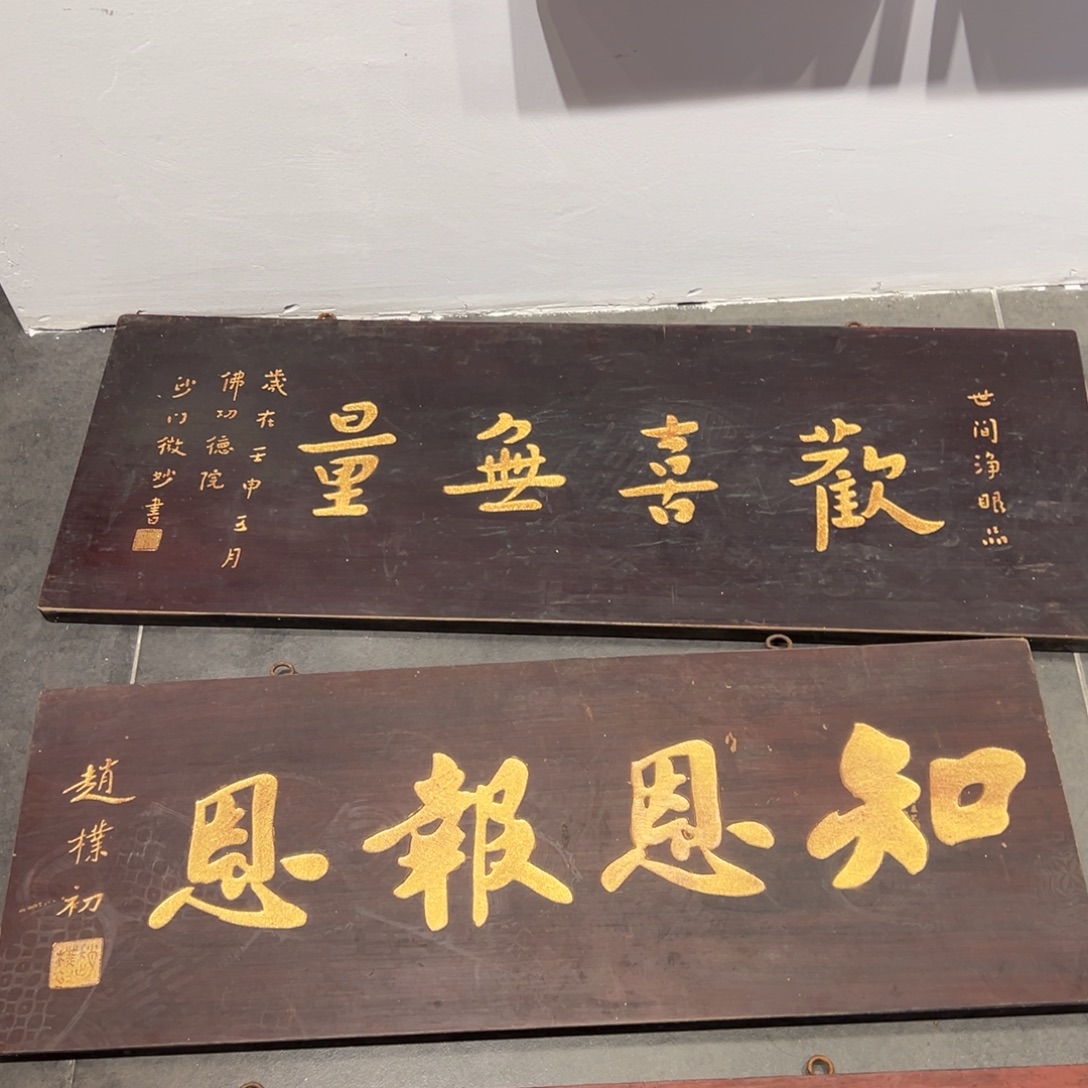 世间净眼品
歡喜無量
歲在壬申五月
佛功德院
沙门微妙書
知恩報恩
趙樸初